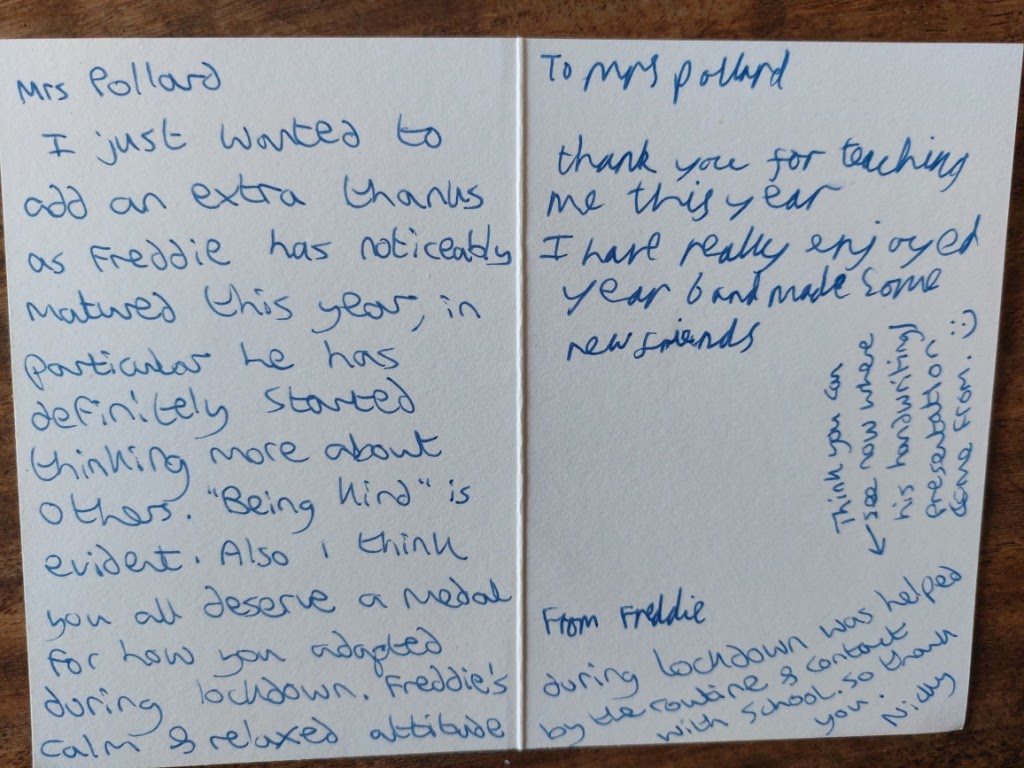 Mrs Pollard
I just wanted to
add an extra thanks
as Freddie has noticeably
matured this year, in
particular he has
definitely started
thinking more about
others. "Being Kind" is
evident. Also I think
you all deserve a medal
for how you adapted
during lockdown. Freddie's
calm & relaxed attitude
To Mrs Pollard
thank you for teaching
me this year
I have really enjoyed
year 6 and made some
new friends
From Freddie
during lockdown was helped
by the routine & contact
with school. So thank
you.
Nicky
Think you can
see now where
his handwriting/
presentation
come from. :)